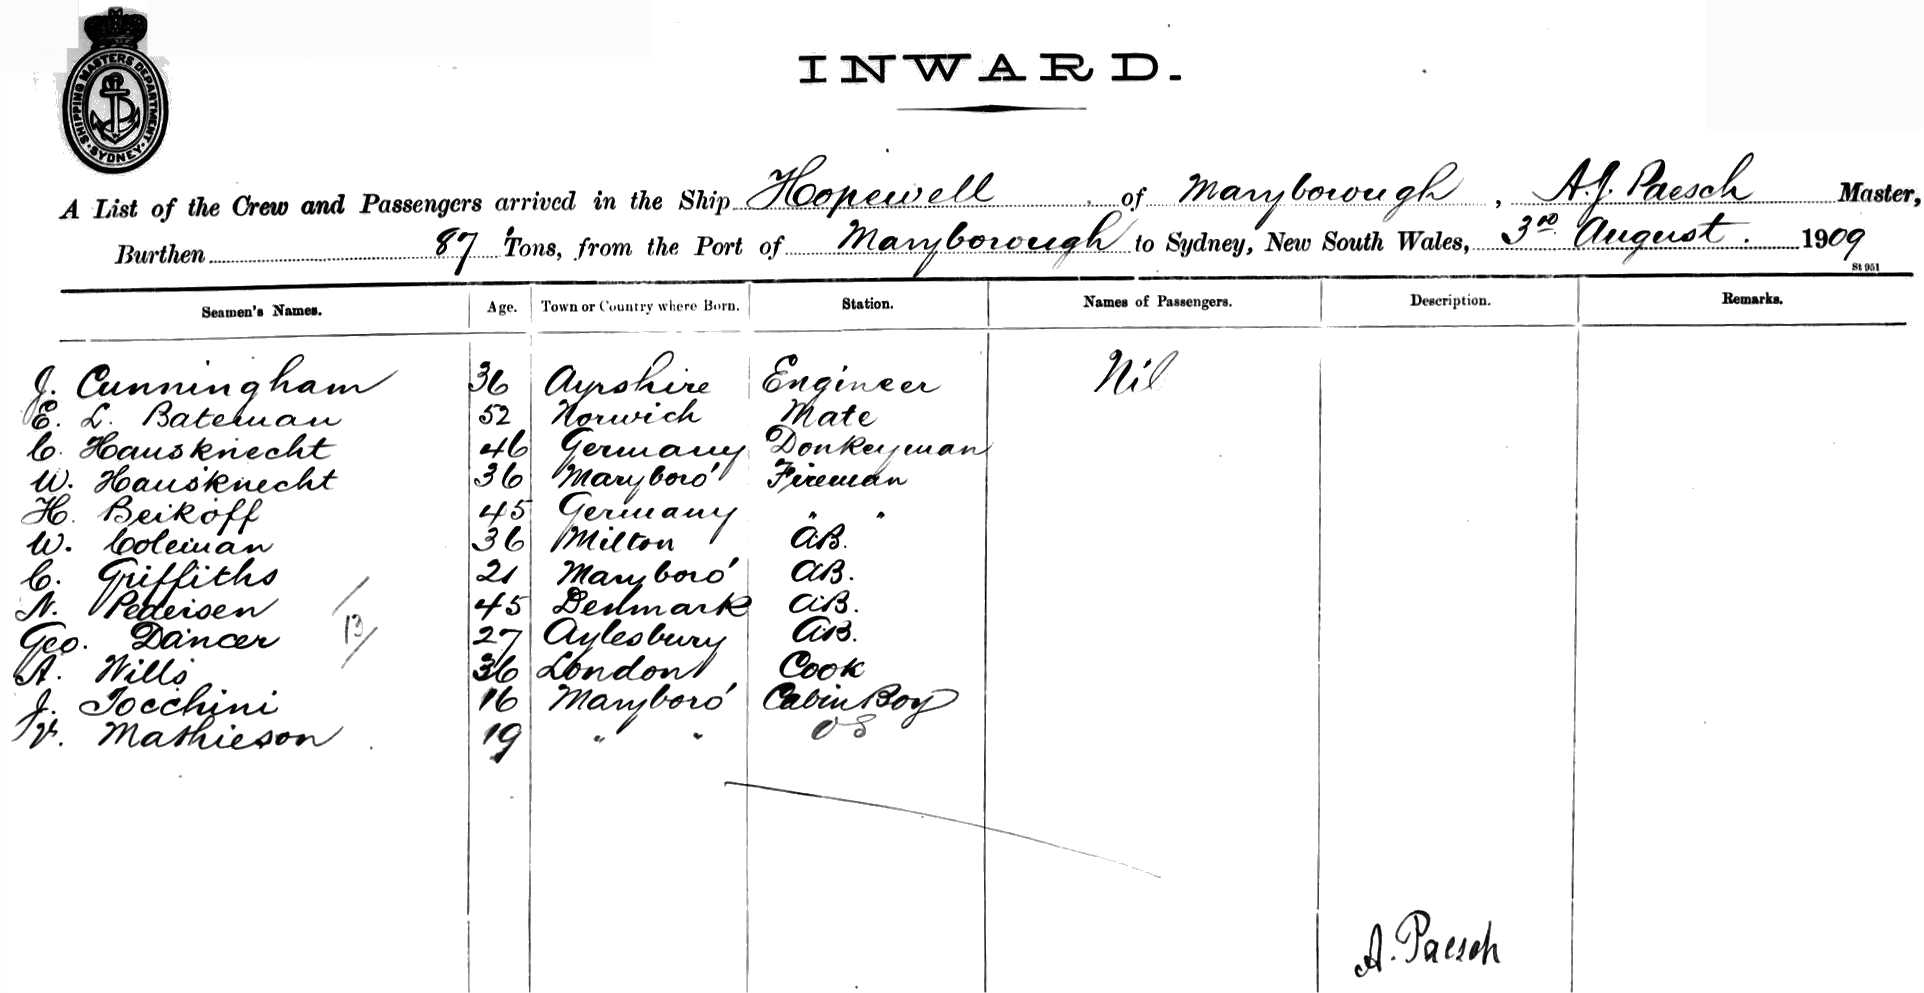 SHIPPING MASTERS DEPARTMENT
SYDNEY
INWARD.
A List of the Crew and Passengers arrived in the Ship Hopewell of Maryborough, A.J. Paesch Master,
Burthen 87 Tons, from the Port of Maryborough to Sydney, New South Wales, 3rd August. 1909
St 951
Seamen's Names. Age. Town or Country where Born. Station. Names of Passengers. Description. Remarks.
J. Cunningham 36 Ayrshire Engineer Nil
E. L. Bateman 52 Norwich Mate
C. Hausknecht 46 Germany Donkeyman
W. Hausknecht 36 Maryboro' Fireman
H. Beikoff 45 Germany " "
W. Coleman 36 Milton A.B.
C. Griffiths 21 Maryboro' A.B.
N. Pedersen 45 Denmark A.B.
Geo. Dancer 13 27 Aylesbury A.B.
A. Wills 36 London Cook
J. Tocchini 16 Maryboro' Cabin Boy
Mathieson 19 " " OS
A. Paesch